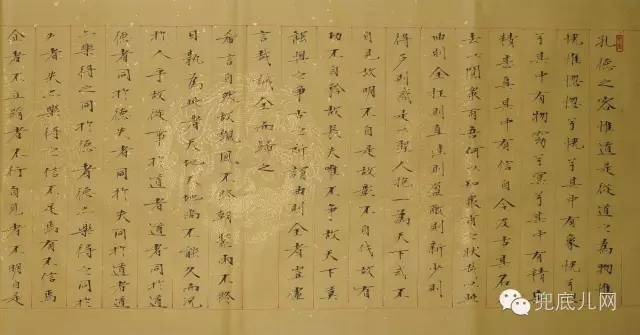 孔德之容惟道是從道之為物惟
恍惟惚惚兮恍兮其中有象恍兮惚
兮其中有物窈兮冥兮其中有精其
精甚真其中有信自今及古其名不
去以閱衆甫吾何以知衆甫之狀哉以此
曲則全枉則直窪則盈敝則新少則
得多則惑是以聖人抱一為天下式不
自見故明不自是故彰不自伐故有
功不自矜故長夫唯不爭故天下莫
能與之爭古之所謂曲則全者豈虛
言哉誠全而歸之
希言自然故飄風不終朝驟雨不終
日孰為此者天地天地尚不能久而況
於人乎故從事於道者同於道
德者同於德失者同於失同於道者道
亦樂得之同於德者德亦樂得之同於
失者失亦樂得之信不足焉有不信焉
企者不立跨者不行自見者不明自是
兜底儿网